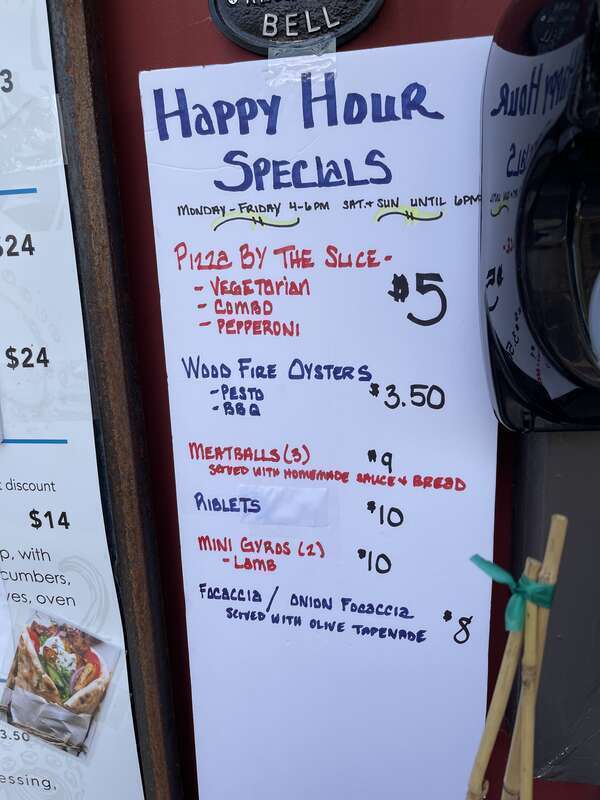 BELL
HAPPY HOUR
SPECIALS
MONDAY - FRIDAY 4-6PM SAT. + SUN UNTIL 6PM
PIZZA BY THE SLICE - $5
- VEGETARIAN
- COMBO
- PEPPERONI
WOOD FIRE OYSTERS $3.50
- PESTO
- BBQ
MEATBALLS (3) $9
SERVED WITH HOMEMADE SAUCE + BREAD
RIBLETS $10
MINI GYROS (2) $10
- LAMB
FOCACCIA / ONION FOCACCIA
SERVED WITH OLIVE TAPENADE $8
3
$24
$24
discount
$14
with
oven
3.50